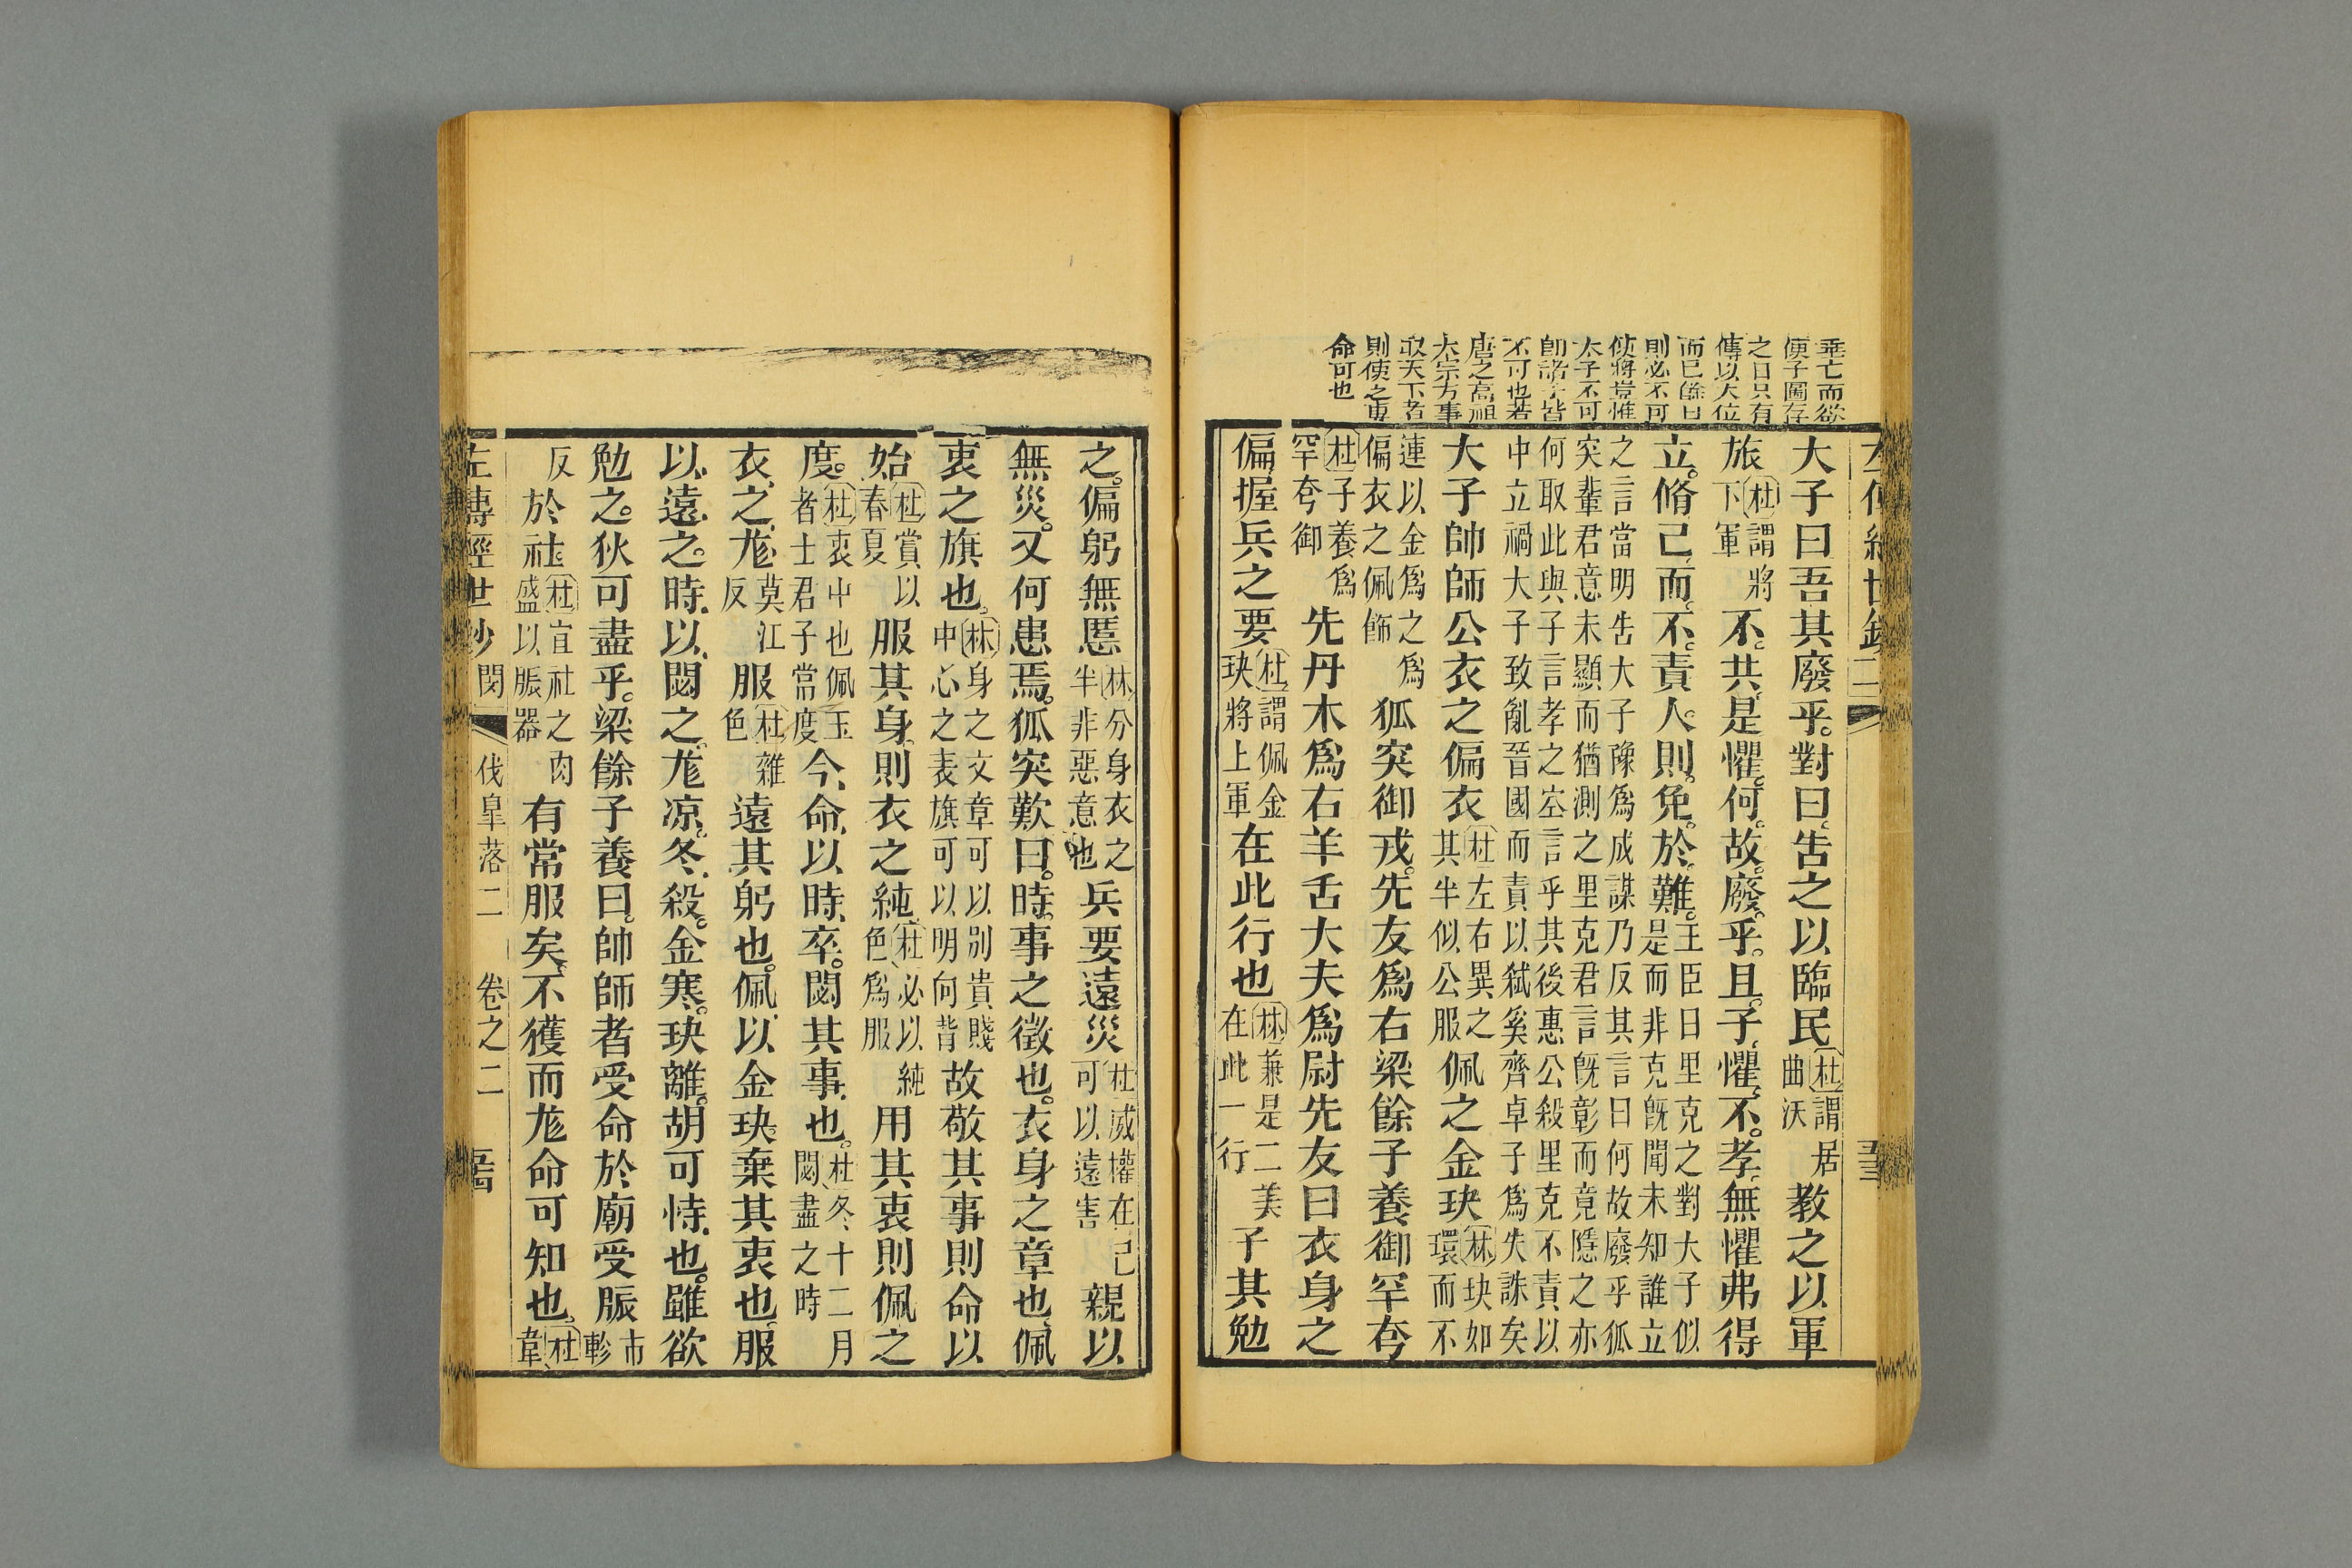 左傳經世鈔
垂亡而欲
便子圖存
之日只有
傳以大位
而已餘曰
則必不可
使將豈惟
太子不可
卽諸子皆
不可也若
唐之高祖
太宗方事
取天下者
則使之專
命可也
大子曰吾其廢乎。對曰。告之以臨民杜謂居曲沃教之以軍
旅杜謂將下軍不共是懼。何故廢乎。且子懼不孝無懼弗得
立。脩己而不責人則免於難。王臣曰里克之對大子似是而非克旣聞未知誰立
之言當明告大子豫爲成謀乃反其言曰何故廢乎狐突輩君意未顯而猶測之里克君言旣彰而竟隱之亦
何取此與子言孝之空言乎其後惠公殺里克不責以中立禍大子致亂晉國而責以弒奚齊卓子爲失誅矣
大子帥師公衣之偏衣杜左右異之其半似公服佩之金玦林玦如環而不
連以金爲之爲偏衣之佩飾狐突御戎。先友爲右梁餘子養御罕夸
杜子養爲罕夸御先丹木爲右羊舌大夫爲尉先友曰衣身之
偏握兵之要杜謂佩金玦將上軍在此行也林兼是二美在此一行子其勉
之。偏躬無慝林分身衣之半非惡意也兵要遠災杜威權在己可以遠害親以
無災。又何患焉。狐突歎曰。時事之徵也。衣身之章也佩
衷之旗也。林身之文章可以別貴賤中心之表旗可以明向背故敬其事則命以
始杜賞以春夏服其身則衣之純杜必以純色爲服用其衷則佩之
度。杜衷中也佩玉者士君子常度今命以時卒。閟其事也。杜冬十二月閟盡之時
衣之尨莫江反服杜雜色遠其躬也。佩以金玦棄其衷也服
以遠之。時以閟之。尨凉。冬殺。金寒。玦離。胡可恃也。雖欲
勉之。狄可盡乎。梁餘子養曰。帥師者受命於廟受脤市軫
反於社杜宜社之肉盛以脤器有常服矣。不獲而尨命可知也。杜韋
左傳經世鈔 閔 伐皐落二 卷之二